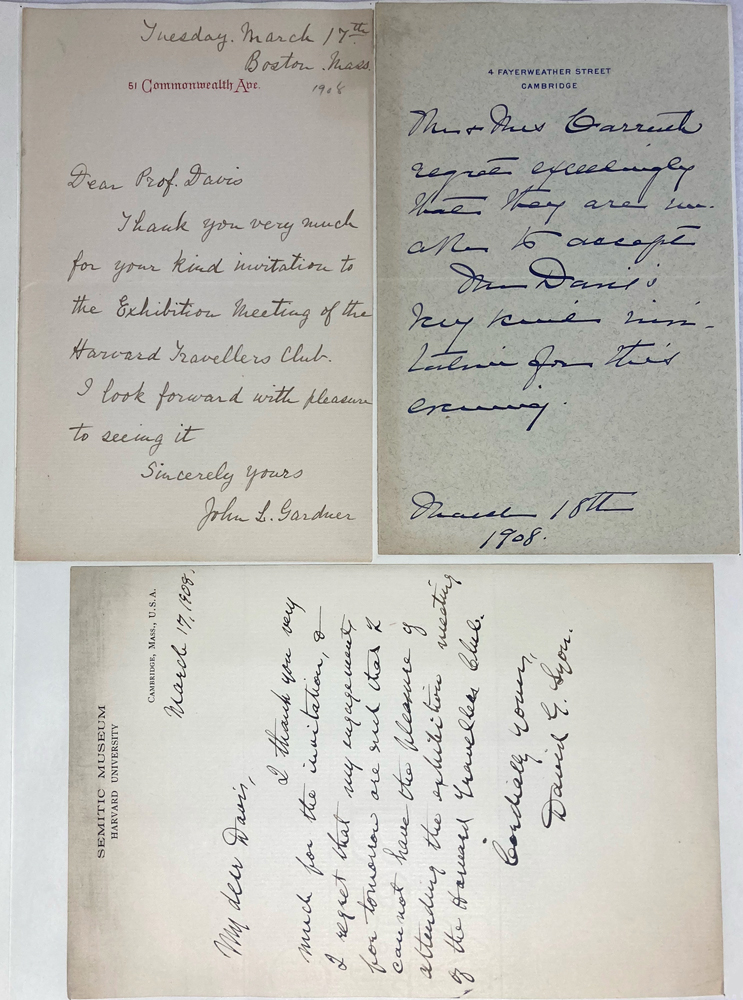 Tuesday. March 17th
Boston. Mass.
1908
51 Commonwealth Ave.
Dear Prof. Davis
Thank you very much
for your kind invitation to
the Exhibition Meeting of the
Harvard Travellers Club.
I look forward with pleasure
to seeing it
Sincerely yours
John L. Gardner
4 FAYERWEATHER STREET
CAMBRIDGE
Mr & Mrs Carruth
regret exceedingly
that they are un-
able to accept
Mr Davis's
very kind invi-
tation for this
evening.
March 18th
1908.
SEMITIC MUSEUM
HARVARD UNIVERSITY
CAMBRIDGE, MASS., U.S.A.
March 17, 1908.
My dear Davis,
I thank you very
much for the invitation, &
I regret that my engagements
for tomorrow are such that I
can not have the pleasure of
attending the exhibition meeting
of the Harvard Travellers Club.
Cordially yours,
David G. Lyon.